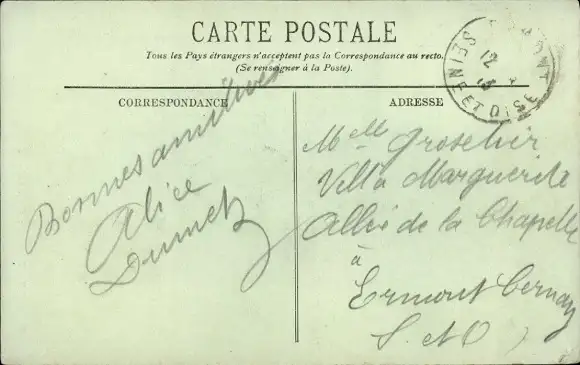 CARTE POSTALE
Tous les Pays étrangers n'acceptent pas la Correspondance au recto.
(Se renseigner à la Poste).
CORRESPONDANCE
ADRESSE
SEINE ET OISE
12
Bonnes amitiés
Alice
Dumetz
Melle Groselier
Villa Marguerite
Allée de la Chapelle
à
Ermont Cernay
S. et O